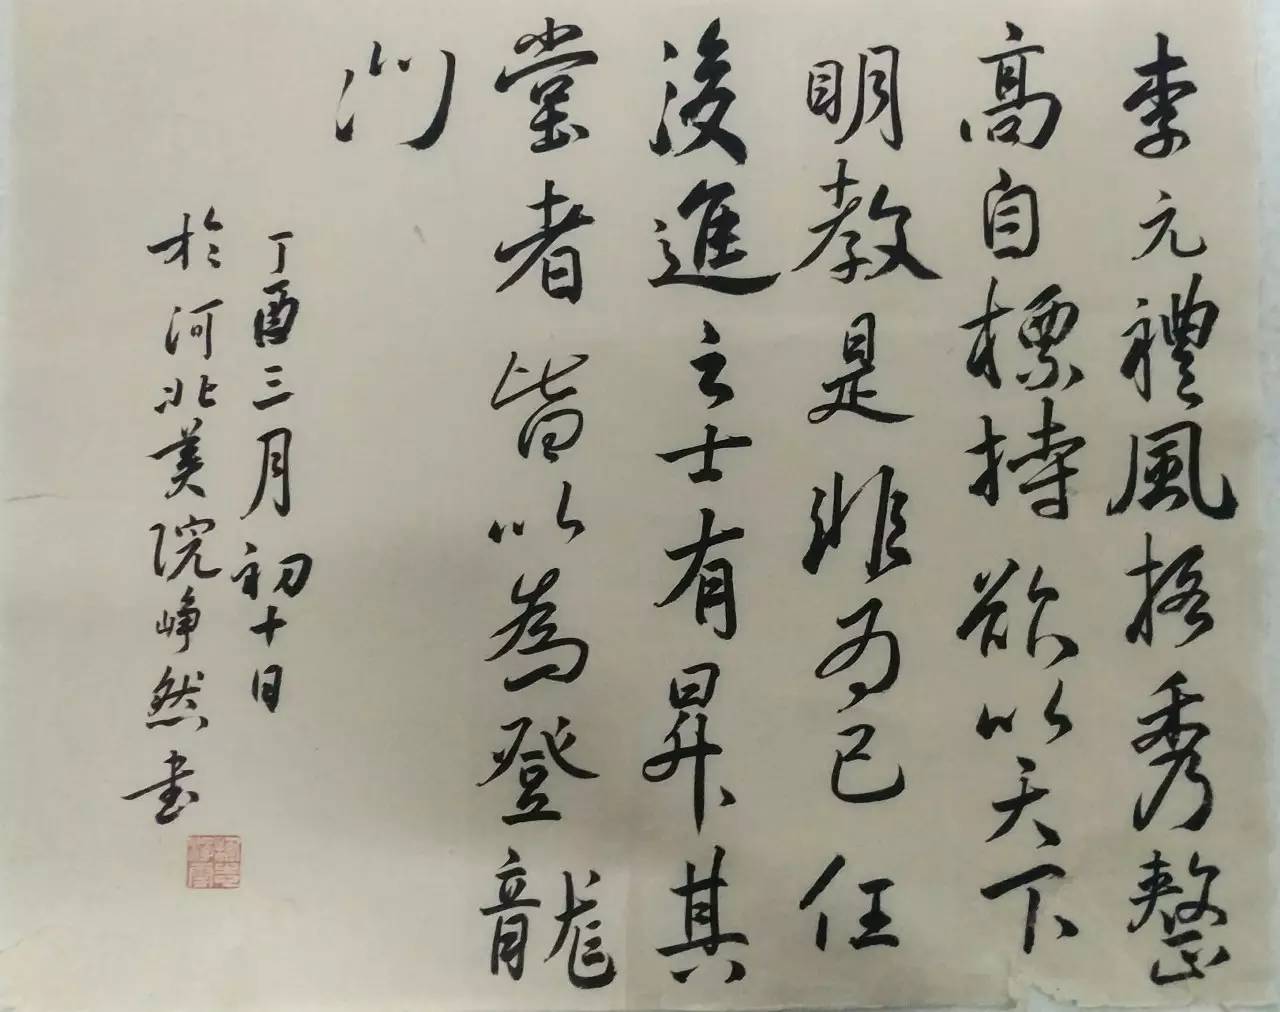 李元禮風格秀整
高自標持欲以天下
明教是非为己任
後進之士有昇其
堂者皆以為登龍
门
丁酉三月初十日
於河北美院崢然书